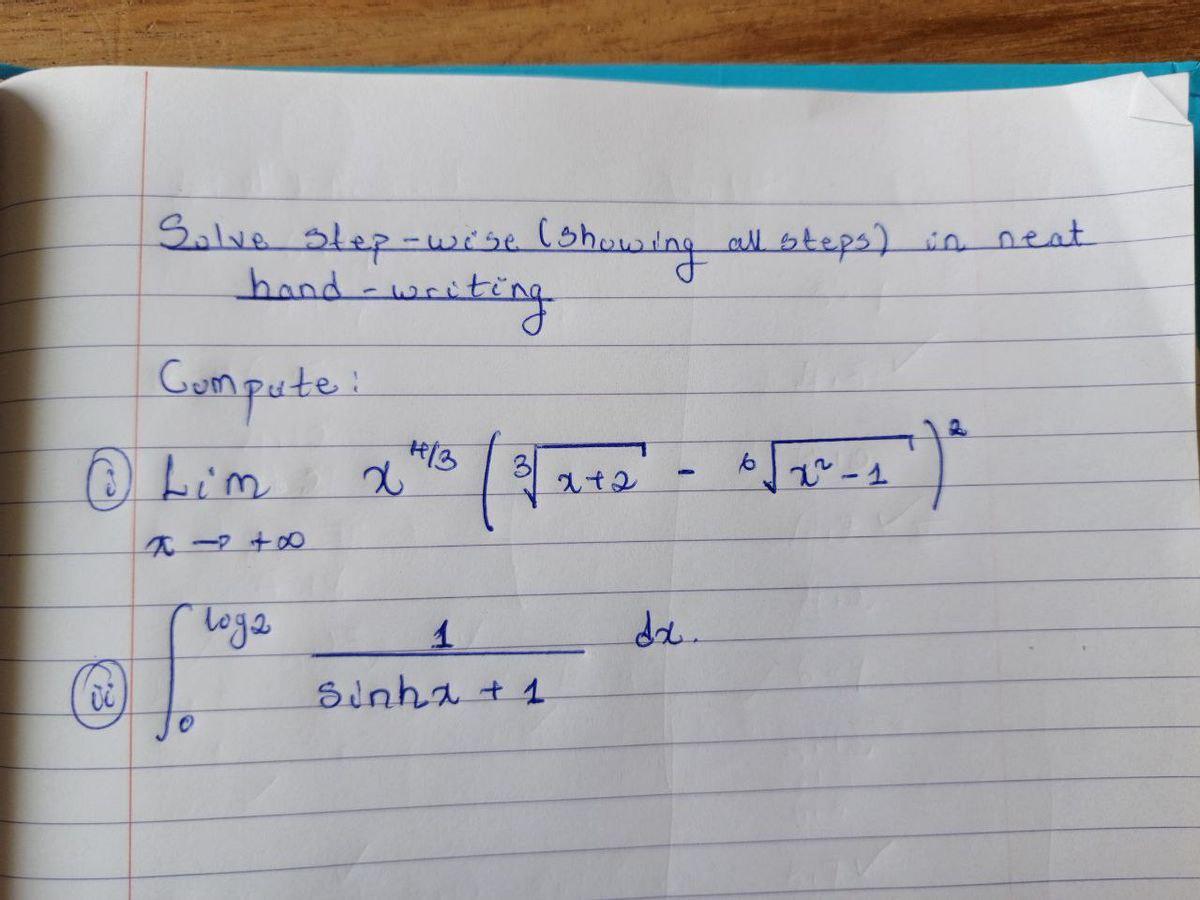 Solve step-wise (showing all steps) in neat
hand-writing
Compute:
(i) Lim x^{4/3} (∛(x+2) - ⁶√(x²-1))²
x → +∞
(ii) ∫₀^{log2} 1/(sinhx + 1) dx.